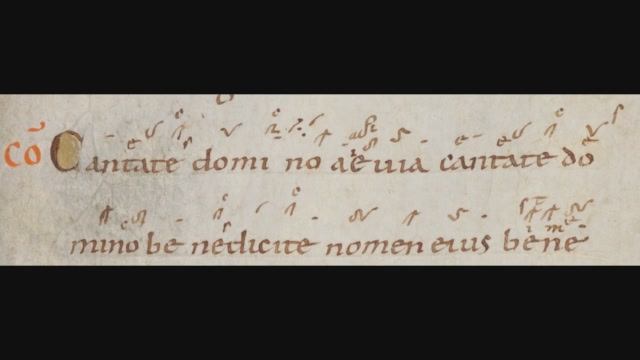 CÕ Cantate domi no aeuia cantate do
mino be nedicite nomen eius bene